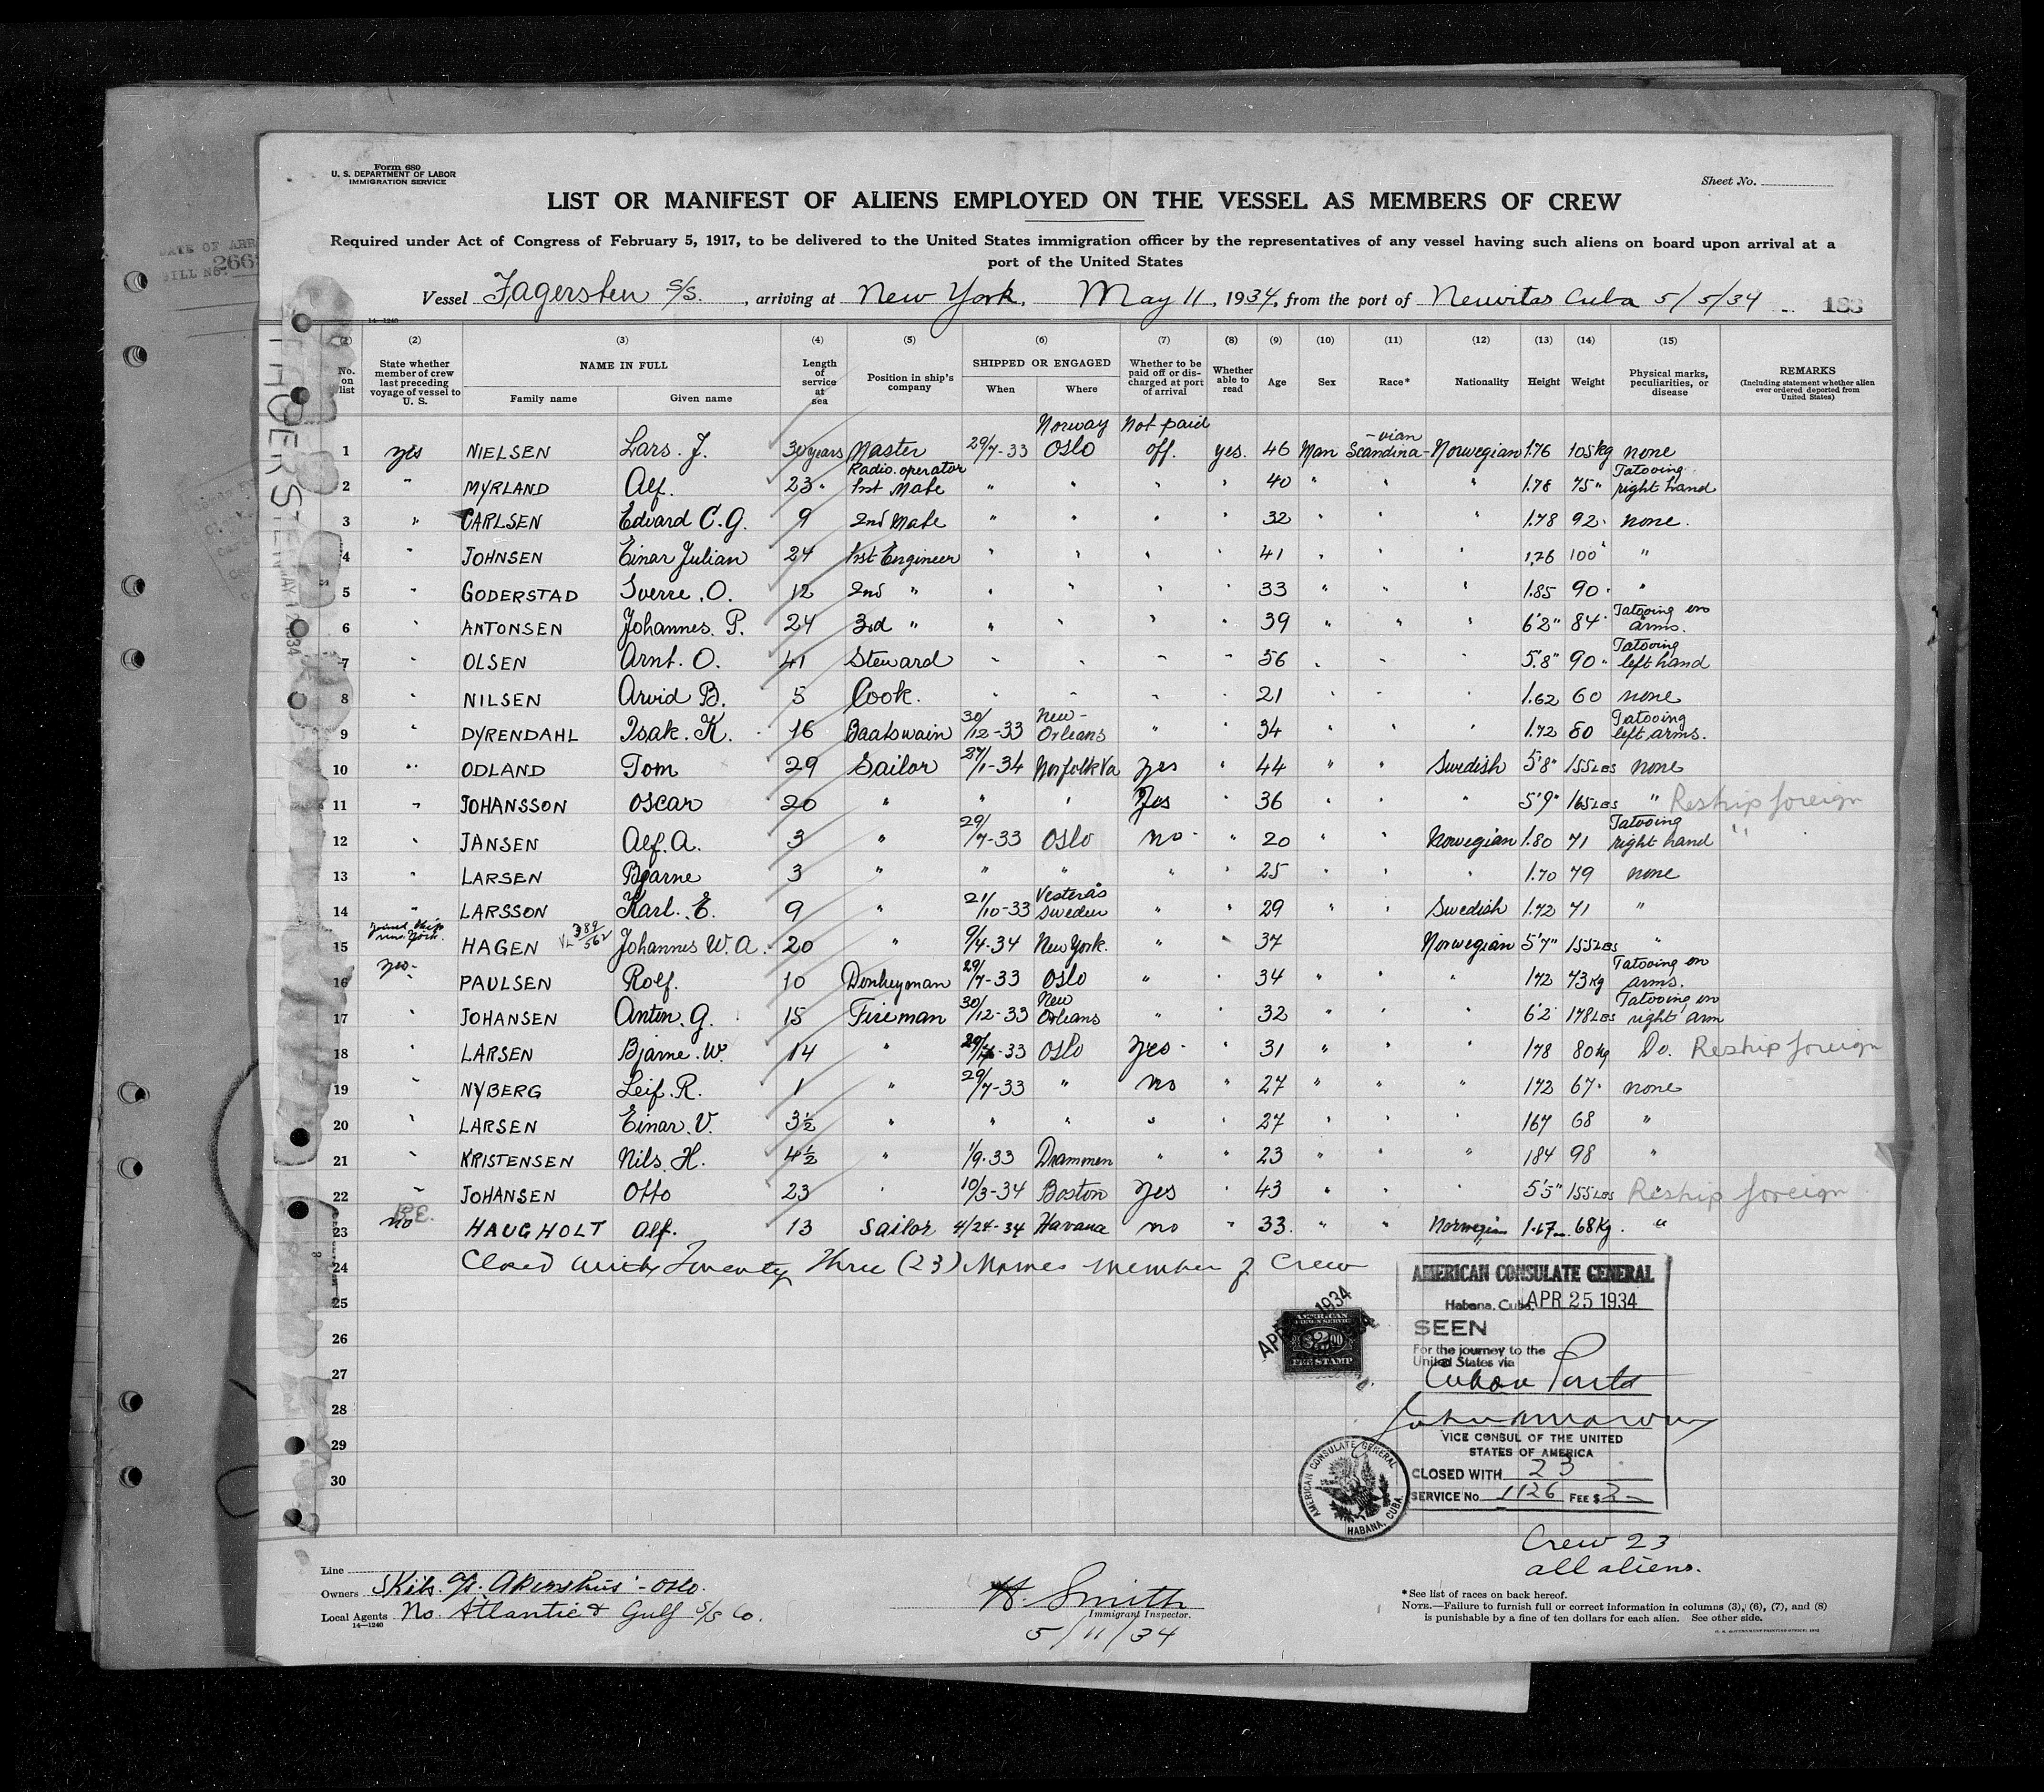 Form 680
U. S. DEPARTMENT OF LABOR
IMMIGRATION SERVICE
Sheet No.
LIST OR MANIFEST OF ALIENS EMPLOYED ON THE VESSEL AS MEMBERS OF CREW
Required under Act of Congress of February 5, 1917, to be delivered to the United States immigration officer by the representatives of any vessel having such aliens on board upon arrival at a
port of the United States
Vessel Fagersten S/S. , arriving at New York, May 11, 1934, from the port of Neuvitas Cuba 5/5/34 183
14—1240
(1) (2) (3) (4) (5) (6) (7) (8) (9) (10) (11) (12) (13) (14) (15)
No. on list State whether member of crew last preceding voyage of vessel to U. S. NAME IN FULL Family name Given name Length of service at sea Position in ship's company SHIPPED OR ENGAGED When Where Whether to be paid off or discharged at port of arrival Whether able to read Age Sex Race* Nationality Height Weight Physical marks, peculiarities, or disease REMARKS (Including statement whether alien ever ordered deported from United States)
1 yes NIELSEN Lars. J. 30 years Master 29/7-33 Norway Oslo Not paid off. yes. 46 Man Scandina-vian Norwegian 1.76 105kg none
2 " MYRLAND Alf. 23 " Radio operator 1st Mate " " " " 40 " " " 1.78 75 " Tatooing right hand
3 " CARLSEN Edvard C.G. 9 2nd Mate " " " " 32 " " " 1.78 92 " none.
4 " JOHNSEN Einar Julian 24 1st Engineer " " " " 41 " " " 1.76 100 " "
5 " GODERSTAD Sverre. O. 12 2nd " " " " " 33 " " " 1.85 90 " "
6 " ANTONSEN Johannes. P. 24 3rd " " " " " 39 " " " 6'2" 84 " Tatooing on arms.
7 " OLSEN Arnt. O. 41 Steward " " " " 56 " " " 5'8" 90 " Tatooing left hand
8 " NILSEN Arvid B. 5 Cook. " " " " 21 " " " 1.62 60 none
9 " DYRENDAHL Isak. K. 16 Baatswain 30/12-33 New-Orleans " " 34 " " " 1.72 80 Tatooing left arms.
10 " ODLAND Tom 29 Sailor 27/1-34 Norfolk Va yes " 44 " " Swedish 5'8" 155 LBS none
11 " JOHANSSON Oscar 20 " " " Yes " 36 " " " 5'9" 165 LBS " Reship foreign
12 " JANSEN Alf. A. 3 " 29/7-33 Oslo no " 20 " " Norwegian 1.80 71 Tatooing right hand "
13 " LARSEN Bjarne 3 " " " " " 25 " " " 1.70 79 none
14 " LARSSON Karl. E. 9 " 21/10-33 Vesterås Sweden " " 29 " " Swedish 1.72 71 "
15 joined ship New York. HAGEN 389/562 Johannes W.A. 20 " 9/4-34 New York. " " 37 Norwegian 5'7" 155 LBS "
16 yes PAULSEN Rolf. 10 Donkeyman 29/7-33 Oslo " " 34 " " " 172 73 kg Tatooing on arms.
17 " JOHANSEN Anton. G. 15 Fireman 30/12-33 New Orleans " " 32 " " " 6'2 178 LBS Tatooing on right arm
18 " LARSEN Bjarne. W. 14 " 29/7-33 Oslo Yes " 31 " " " 178 80 kg Do. Reship foreign
19 " NYBERG Leif. R. 1 " 29/7-33 " no " 27 " " " 172 67 " none
20 " LARSEN Einar. V. 3½ " " " " " 27 " " " 167 68 "
21 " KRISTENSEN Nils. H. 4½ " 1/9-33 Drammen " " 23 " " " 184 98 "
22 " JOHANSEN Otto 23 " 10/3-34 Boston Yes " 43 " " " 5'5" 155 LBS " Reship foreign
23 no HAUGHOLT Alf. 13 Sailor 4/24-34 Havana no " 33. " " Norwegian 1.67 68 Kg. "
24 Closed with Twenty Three (23) Names member of Crew
25
26
27
28
29
30
AMERICAN CONSULATE GENERAL
Habana, Cuba, APR 25 1934
SEEN
For the journey to the
United States via
Cuban Ports
VICE CONSUL OF THE UNITED
STATES OF AMERICA
CLOSED WITH 23
SERVICE No. 1126 FEE $ 2-
AMERICAN CONSULATE GENERAL HABANA, CUBA.
AMERICAN
$2.00
FEE STAMP
Crew 23
all aliens.
Line
Owners Skibs. A/S. Akershus - Oslo.
Local Agents No. Atlantic & Gulf S/S Co.
14—1240
H. Smith
Immigrant Inspector.
5/11/34
*See list of races on back hereof.
NOTE.—Failure to furnish full or correct information in columns (3), (6), (7), and (8)
is punishable by a fine of ten dollars for each alien. See other side.
THORSTEN